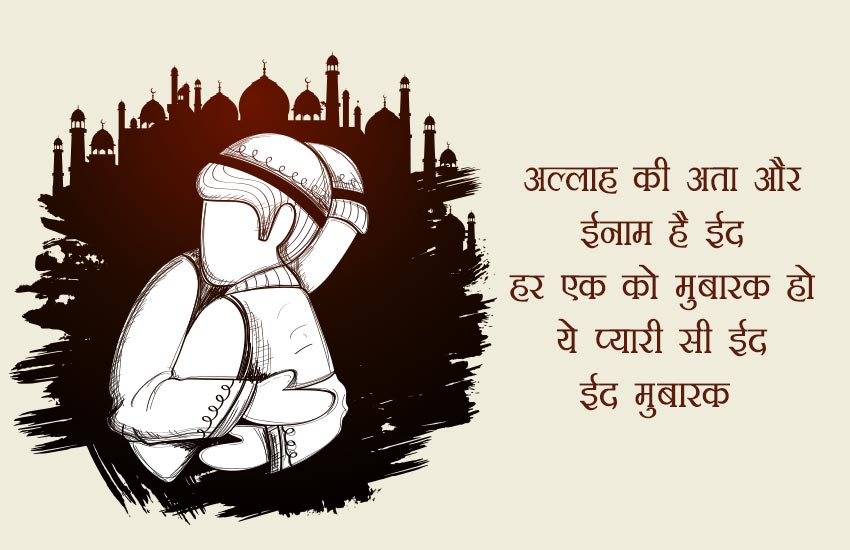 अल्लाह की अता और
ईनाम है ईद
हर एक को मुबारक हो
ये प्यारी सी ईद
ईद मुबारक